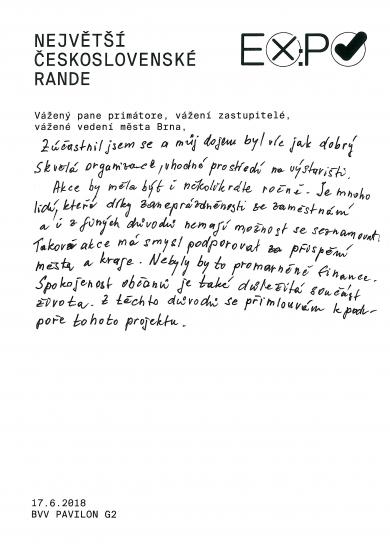 NEJVĚTŠÍ
ČESKOSLOVENSKÉ
RANDE
EXPO
Vážený pane primátore, vážení zastupitelé,
vážené vedení města Brna,
Zúčastnil jsem se a můj dojem byl víc jak dobrý
Skvělá organizace, vhodné prostředí na výstavišti.
Akce by měla být i několikráte ročně. Je mnoho
lidí, kteří díky zaneprázdněnosti se zaměstnám
a i z jiných důvodů nemají možnost se seznamovat.
Taková akce má smysl podporovat za přispění
města a kraje. Nebyly by to promarněné finance.
Spokojenost občanů je také důležitá součást
života. Z těchto důvodů se přimlouvám k pod-
poře tohoto projektu.
17.6.2018
BVV PAVILON G2